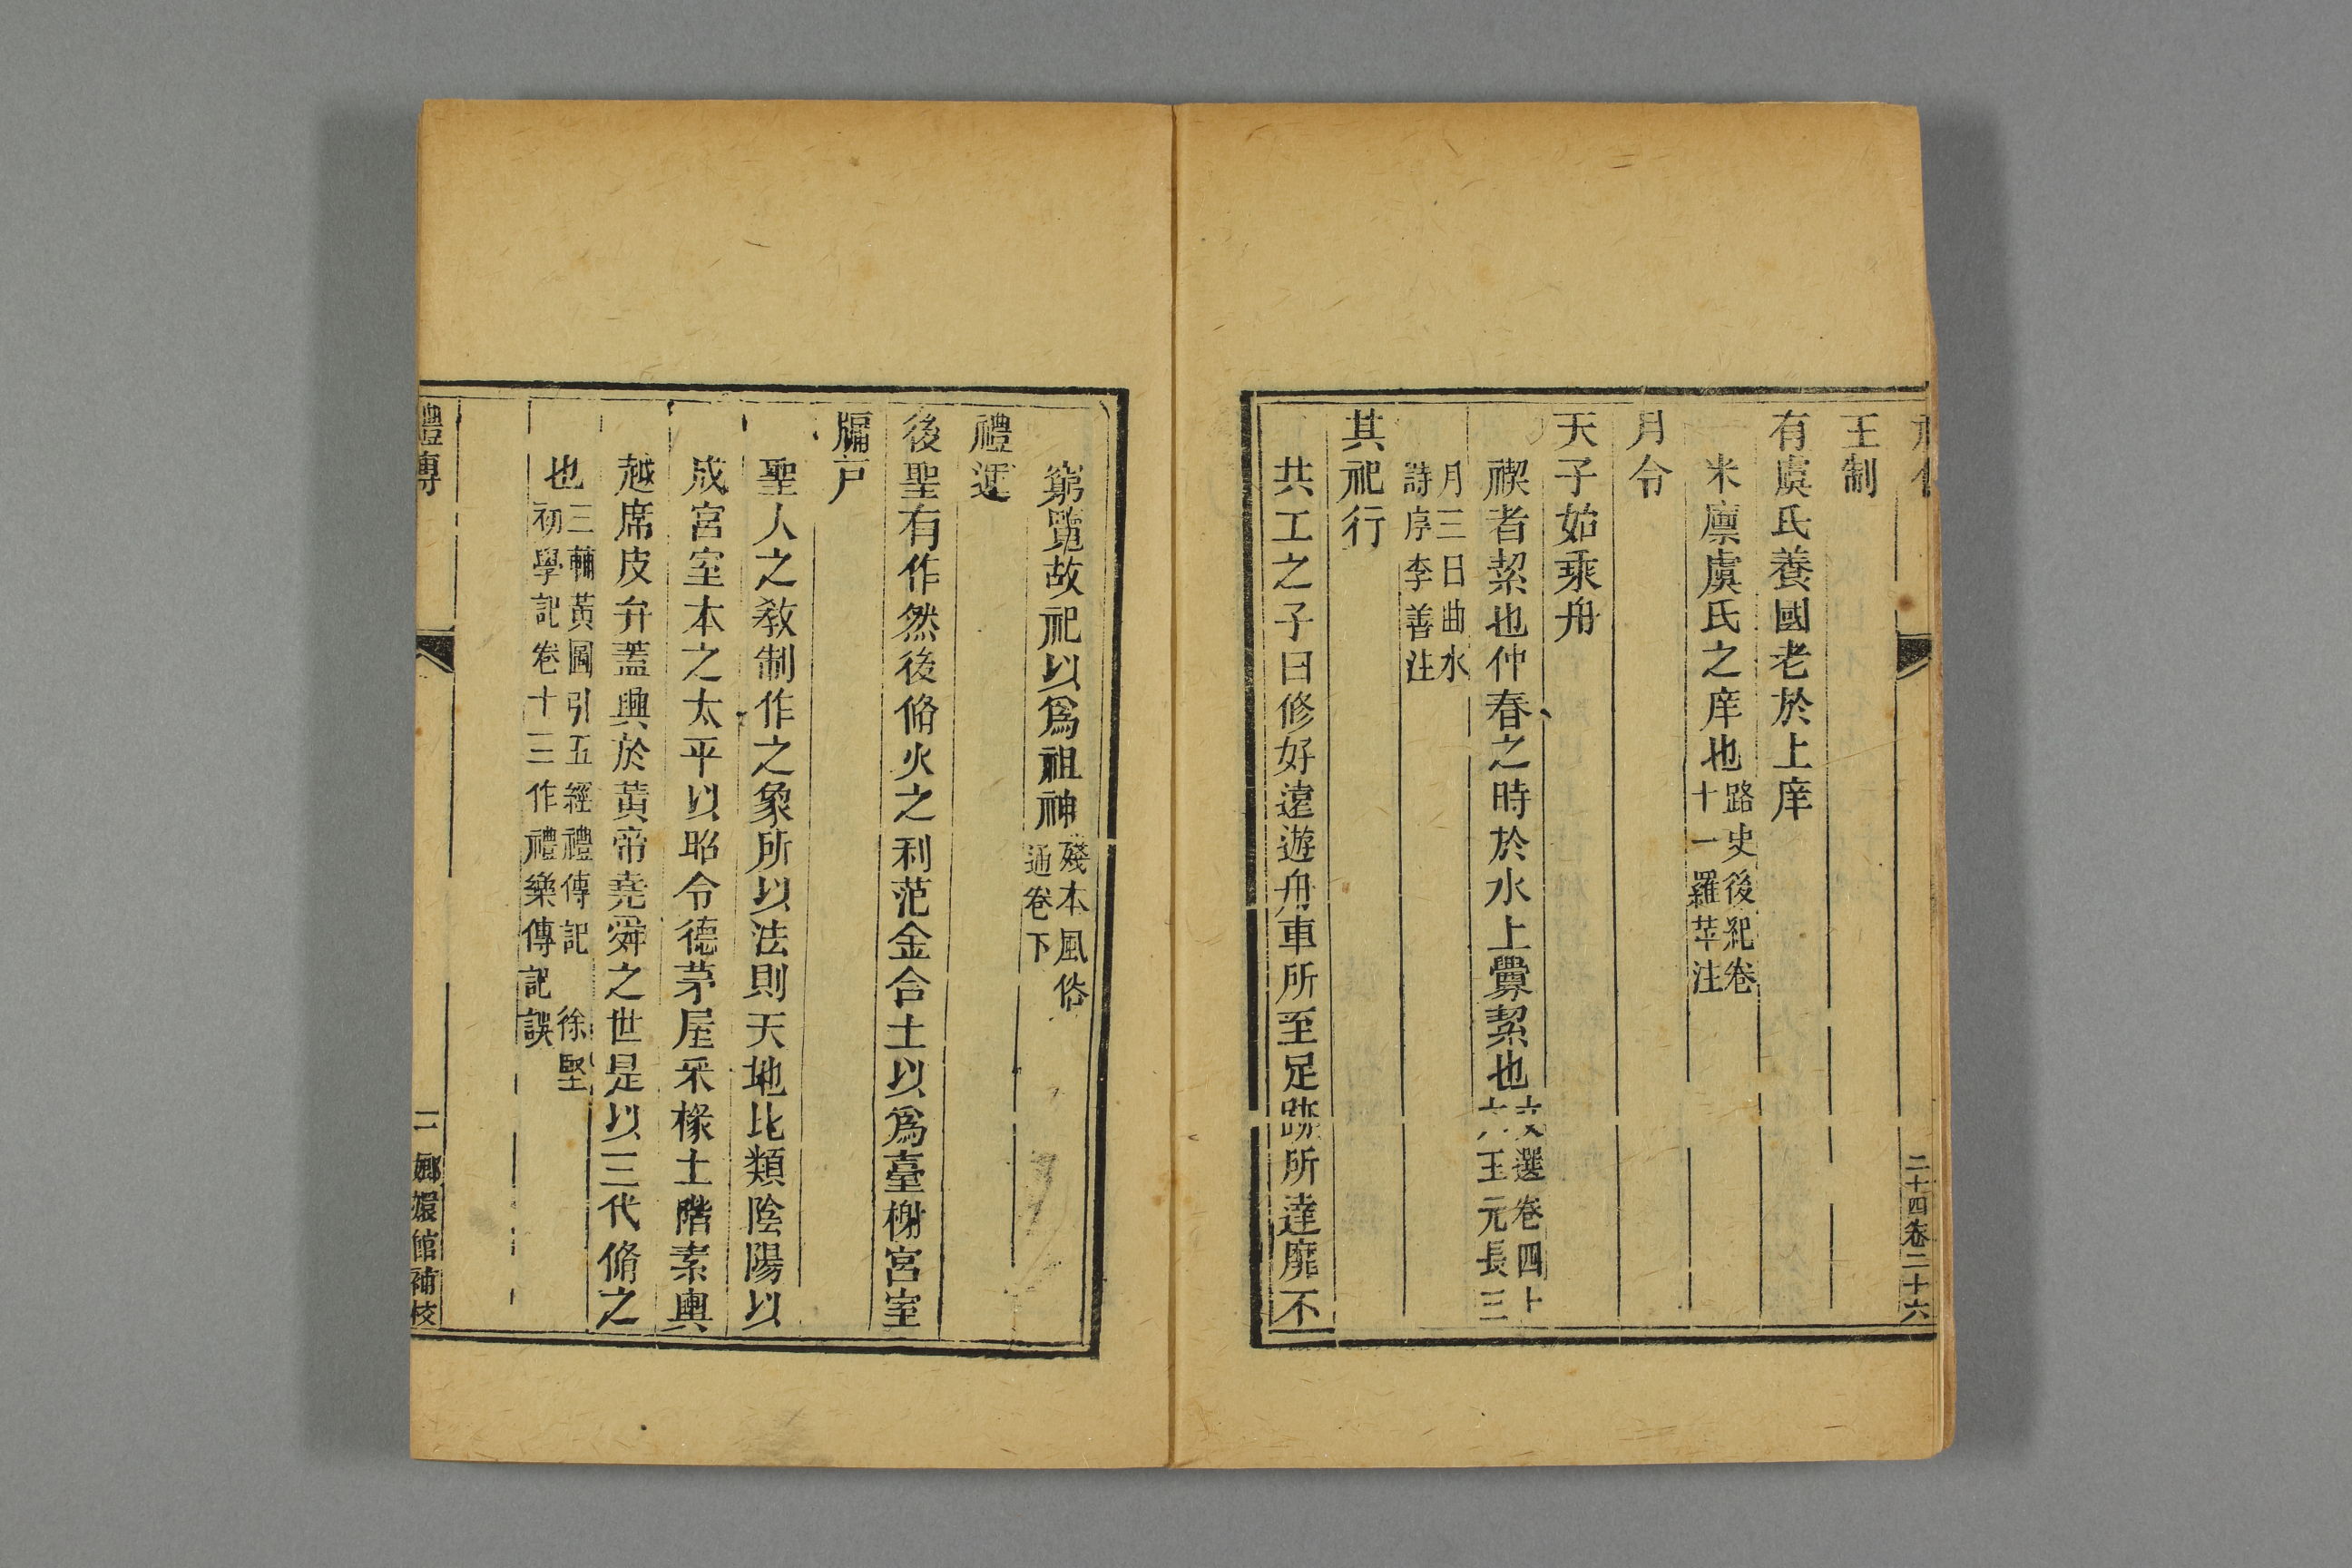 二十四卷二十六
王制
有虞氏養國老於上庠
米廪虞氏之庠也路史後紀卷
十一羅苹注
月令
天子始乘舟
禊者絜也仲春之時於水上釁絜也文選卷四十
六王元長三
月三日曲水
詩序李善注
其祀行
共工之子曰修好遠遊舟車所至足跡所達靡不
窮覽故祀以爲祖神殘本風俗
通卷下
禮運
後聖有作然後脩火之利范金合土以爲臺榭宮室
牖戸
聖人之敎制作之象所以法則天地比類陰陽以
成宮室本之太平以昭令德茅屋采椽土階素輿
越席皮弁蓋興於黃帝堯舜之世是以三代脩之
也三輔黃圖引五經禮傳記 徐堅
初學記卷十三作禮樂傳記誤
禮傳
二 嫏嬛館補校